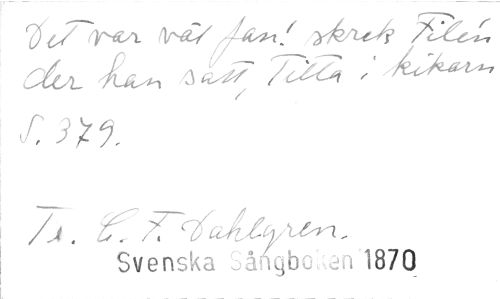 Det var väl fan! skrek Filén
der han satt, Titta i kikarn
S. 379.
Tr. C. F. Dahlgren.
Svenska Sångboken 1870